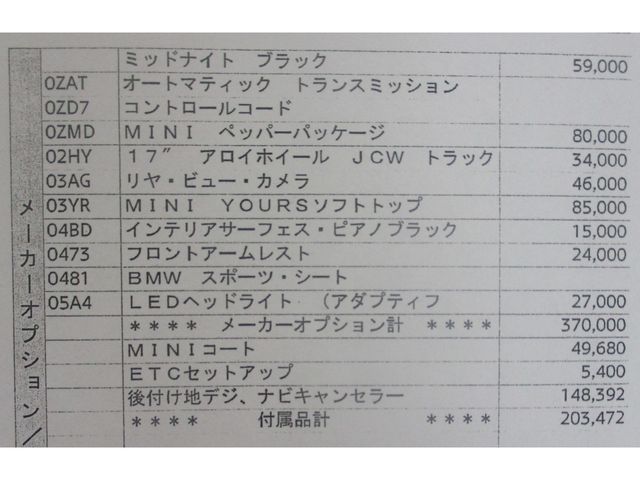 ミッドナイト ブラック 59,000
0ZAT オートマティック トランスミッション
0ZD7 コントロールコード
0ZMD MINI ペッパーパッケージ 80,000
02HY 17″ アロイホイール JCW トラック 34,000
03AG リヤ・ビュー・カメラ 46,000
03YR MINI YOURSソフトトップ 85,000
04BD インテリアサーフェス・ピアノブラック 15,000
0473 フロントアームレスト 24,000
0481 BMW スポーツ・シート
05A4 LEDヘッドライト (アダプティフ 27,000
**** メーカーオプション計 **** 370,000
MINIコート 49,680
ETCセットアップ 5,400
後付け地デジ、ナビキャンセラー 148,392
**** 付属品計 **** 203,472
メーカーオプション/